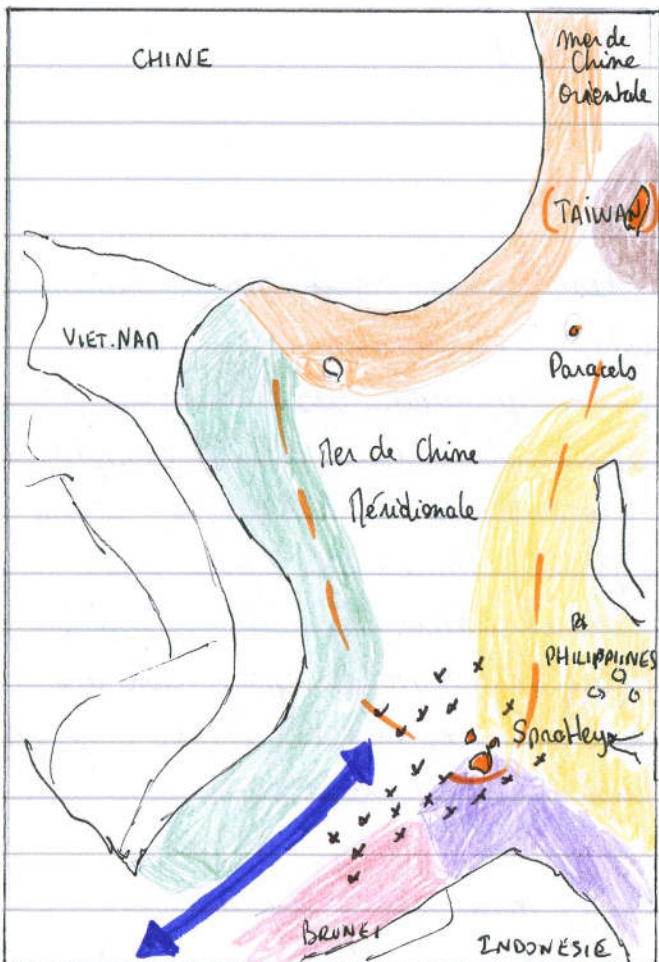 CHINE
mer de
Chine
Orientale
(TAIWAN)
VIET.NAM
Paracels
Mer de Chine
Méridionale
PHILIPPINES
Spratleys
BRUNEI
INDONESIE